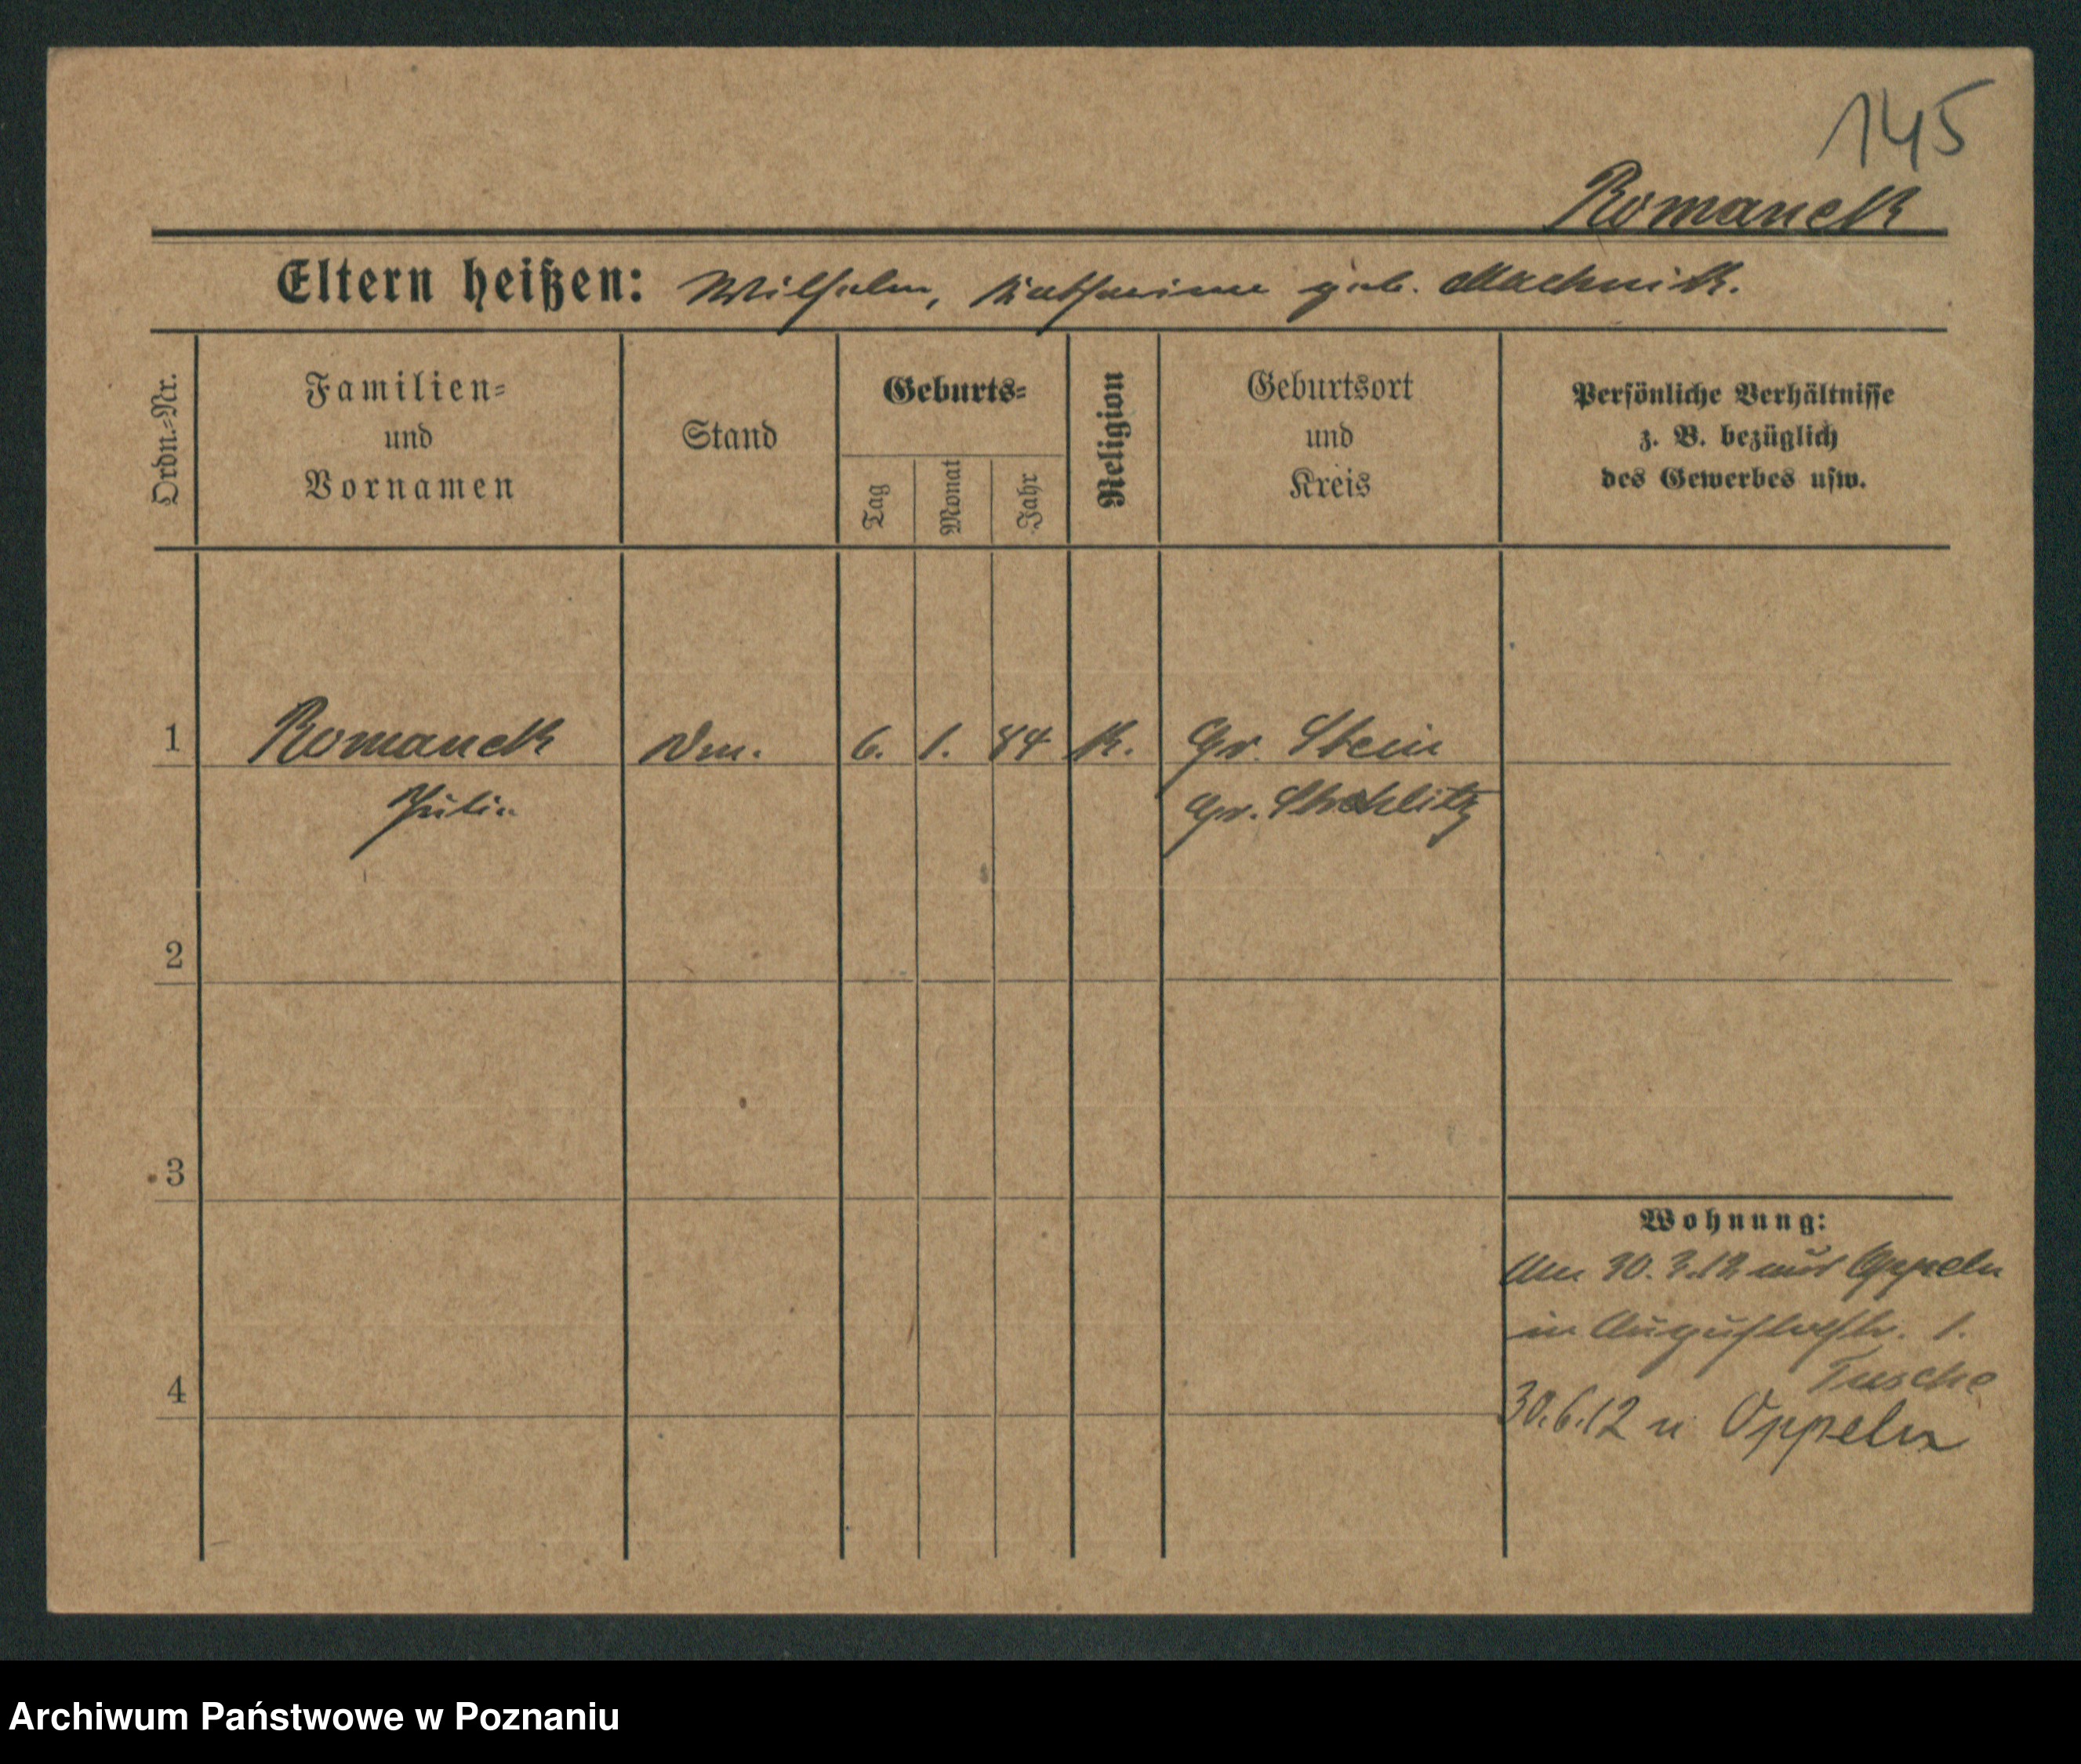 145
Romanek
Eltern heißen: Wilhelm, Katharina geb. Machnik.
Ordn.-Nr.
Familien-
und
Vornamen
Stand
Geburts-
Tag
Monat
Jahr
Religion
Geburtsort
und
Kreis
Persönliche Verhältnisse
z. B. bezüglich
des Gewerbes usw.
1 Romanek 6. 1. 84 K. Gr. Stein
Gr. Strehlitz
2
3
4
Wohnung:
Oppeln
in Augustastr. 1.
Tusche
30.6.12 n Oppeln
Archiwum Państwowe w Poznaniu